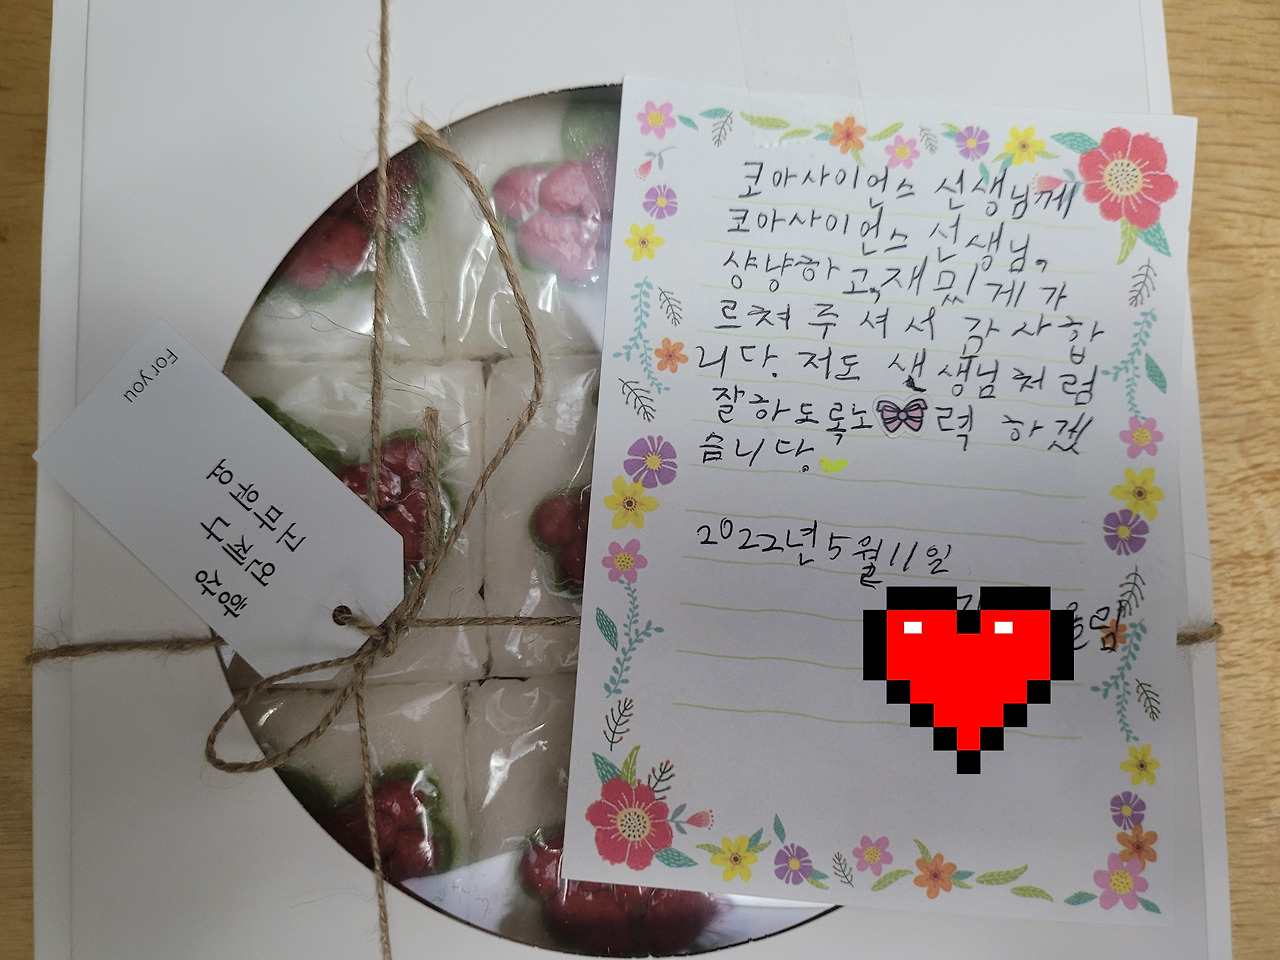 For you
항상
언제나
고마워요
코아사이언스 선생님께
코아사이언스 선생님,
상냥하고,재밌게 가
르쳐 주셔서 감사합
니다. 저도 생님처럼
잘하도록노력 하겠
습니다.
2022년 5월 11일
올림